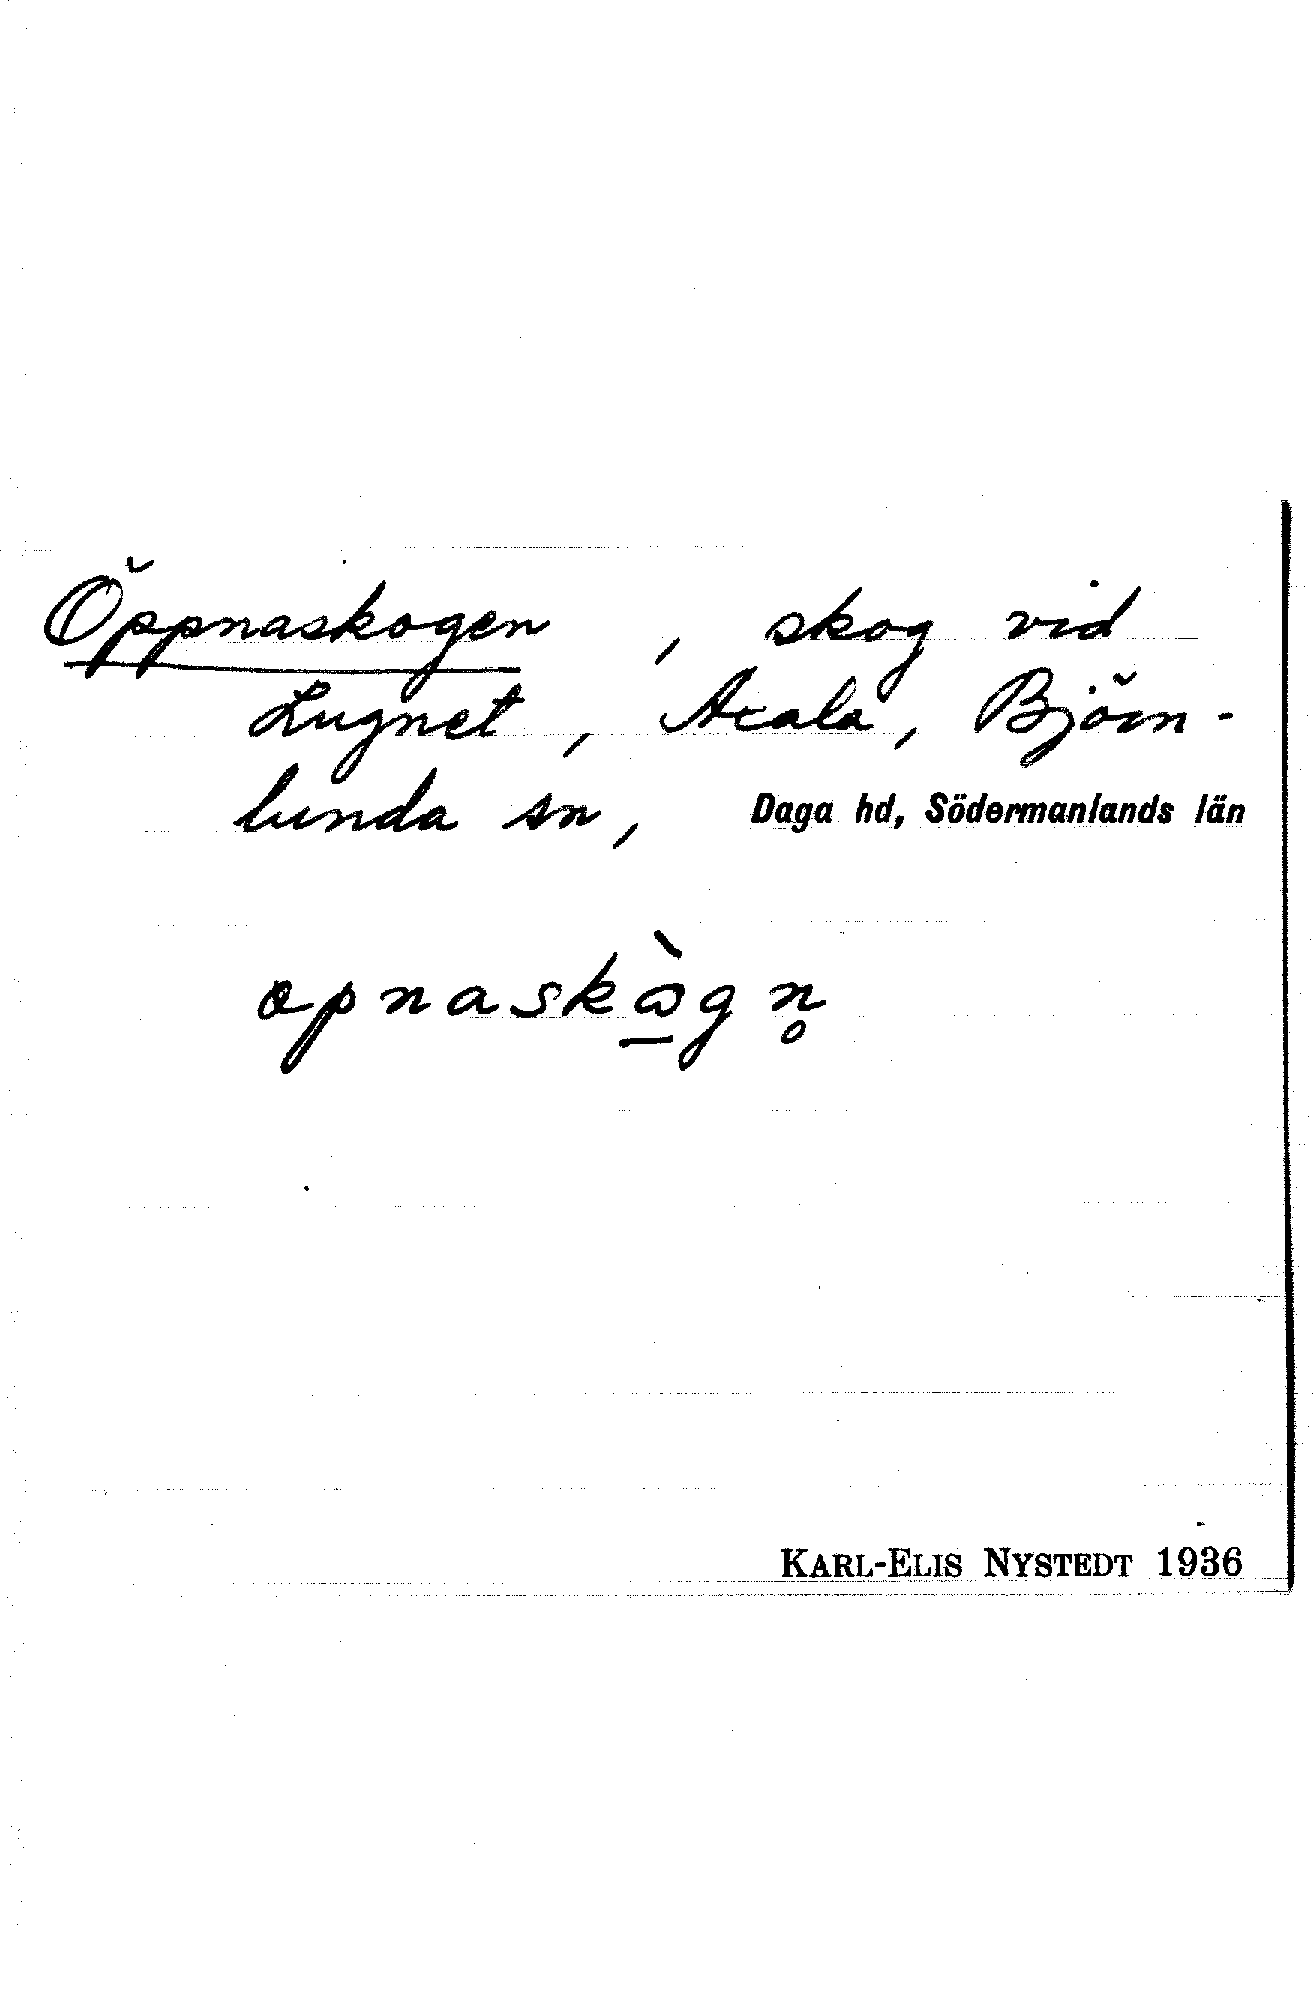 Öppnaskogen, skog vid
Lugnet, Axala, Björn-
lunda sn, Daga hd, Södermanlands län
KARL-ELIS NYSTEDT 1936